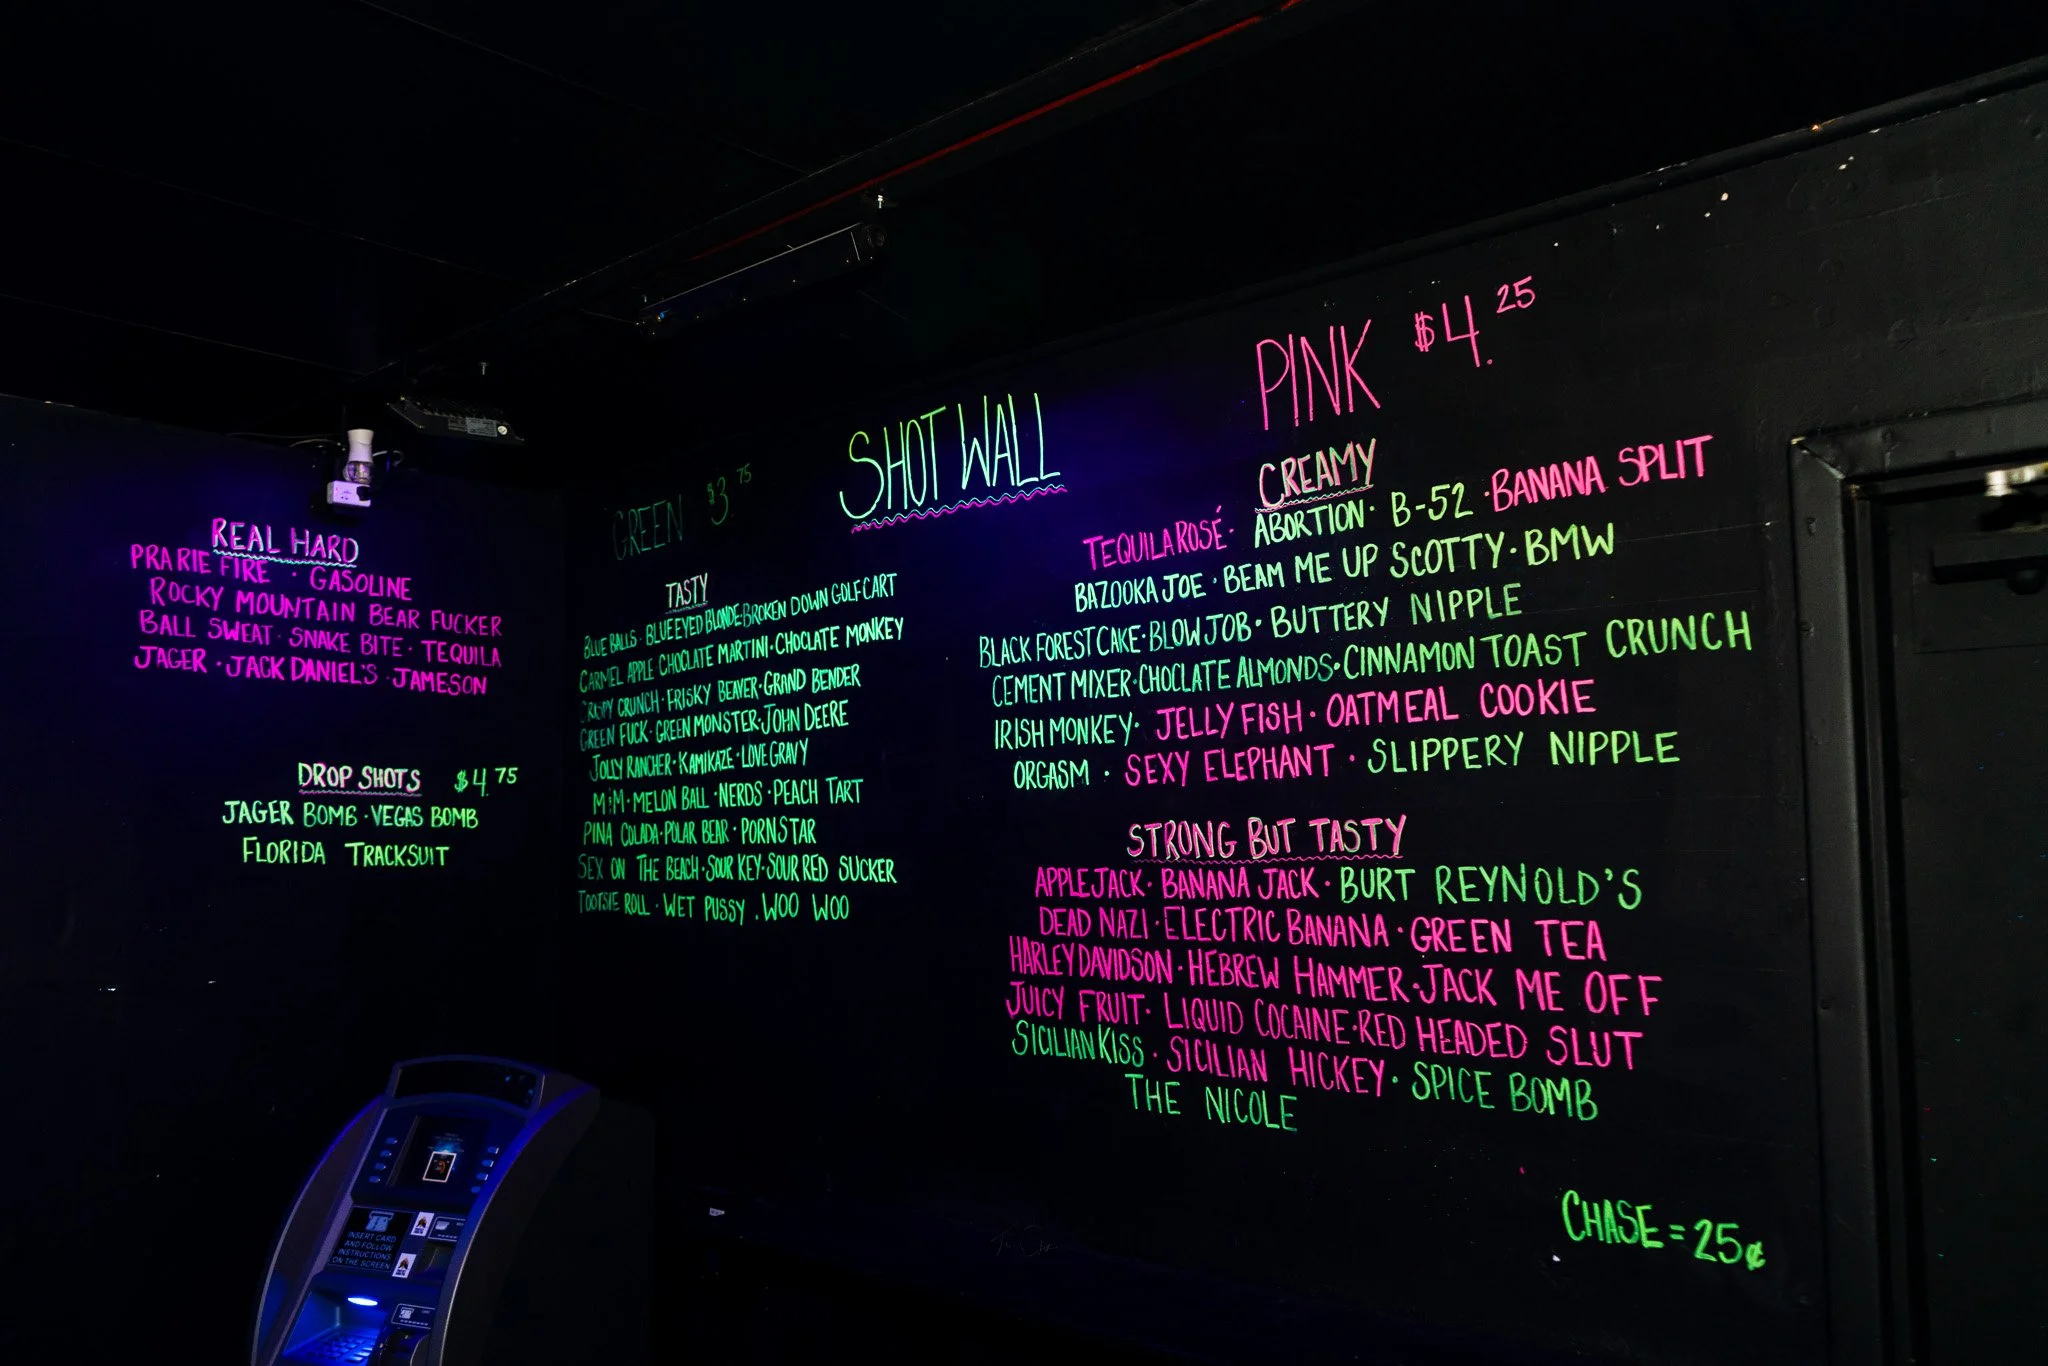 SHOT WALL
REAL HARD
PRARIE FIRE · GASOLINE
ROCKY MOUNTAIN BEAR FUCKER
BALL SWEAT · SNAKE BITE · TEQUILA
JAGER · JACK DANIEL'S · JAMESON
DROP SHOTS $4.75
JAGER BOMB · VEGAS BOMB
FLORIDA TRACKSUIT
GREEN $3.75
TASTY
BLUE BALLS · BLUE EYED BLONDE · BROKEN DOWN GOLF CART
CARMEL APPLE CHOCLATE MARTINI · CHOCLATE MONKEY
CRISPY CRUNCH · FRISKY BEAVER · GRAND BENDER
GREEN FUCK · GREEN MONSTER · JOHN DEERE
JOLLY RANCHER · KAMIKAZE · LOVE GRAVY
M&M · MELON BALL · NERDS · PEACH TART
PINA COLADA · POLAR BEAR · PORNSTAR
SEX ON THE BEACH · SOUR KEY · SOUR RED SUCKER
TOOTSIE ROLL · WET PUSSY . WOO WOO
PINK $4.25
CREAMY
TEQUILA ROSÉ · ABORTION · B-52 · BANANA SPLIT
BAZOOKA JOE · BEAM ME UP SCOTTY · BMW
BLACK FOREST CAKE · BLOW JOB · BUTTERY NIPPLE
CEMENT MIXER · CHOCLATE ALMONDS · CINNAMON TOAST CRUNCH
IRISH MONKEY · JELLY FISH · OATMEAL COOKIE
ORGASM · SEXY ELEPHANT · SLIPPERY NIPPLE
STRONG BUT TASTY
APPLEJACK · BANANA JACK · BURT REYNOLD'S
DEAD NAZI · ELECTRIC BANANA · GREEN TEA
HARLEY DAVIDSON · HEBREW HAMMER · JACK ME OFF
JUICY FRUIT · LIQUID COCAINE · RED HEADED SLUT
SICILIAN KISS · SICILIAN HICKEY · SPICE BOMB
THE NICOLE
CHASE = 25¢
INSERT CARD
AND FOLLOW
INSTRUCTIONS
ON THE SCREEN